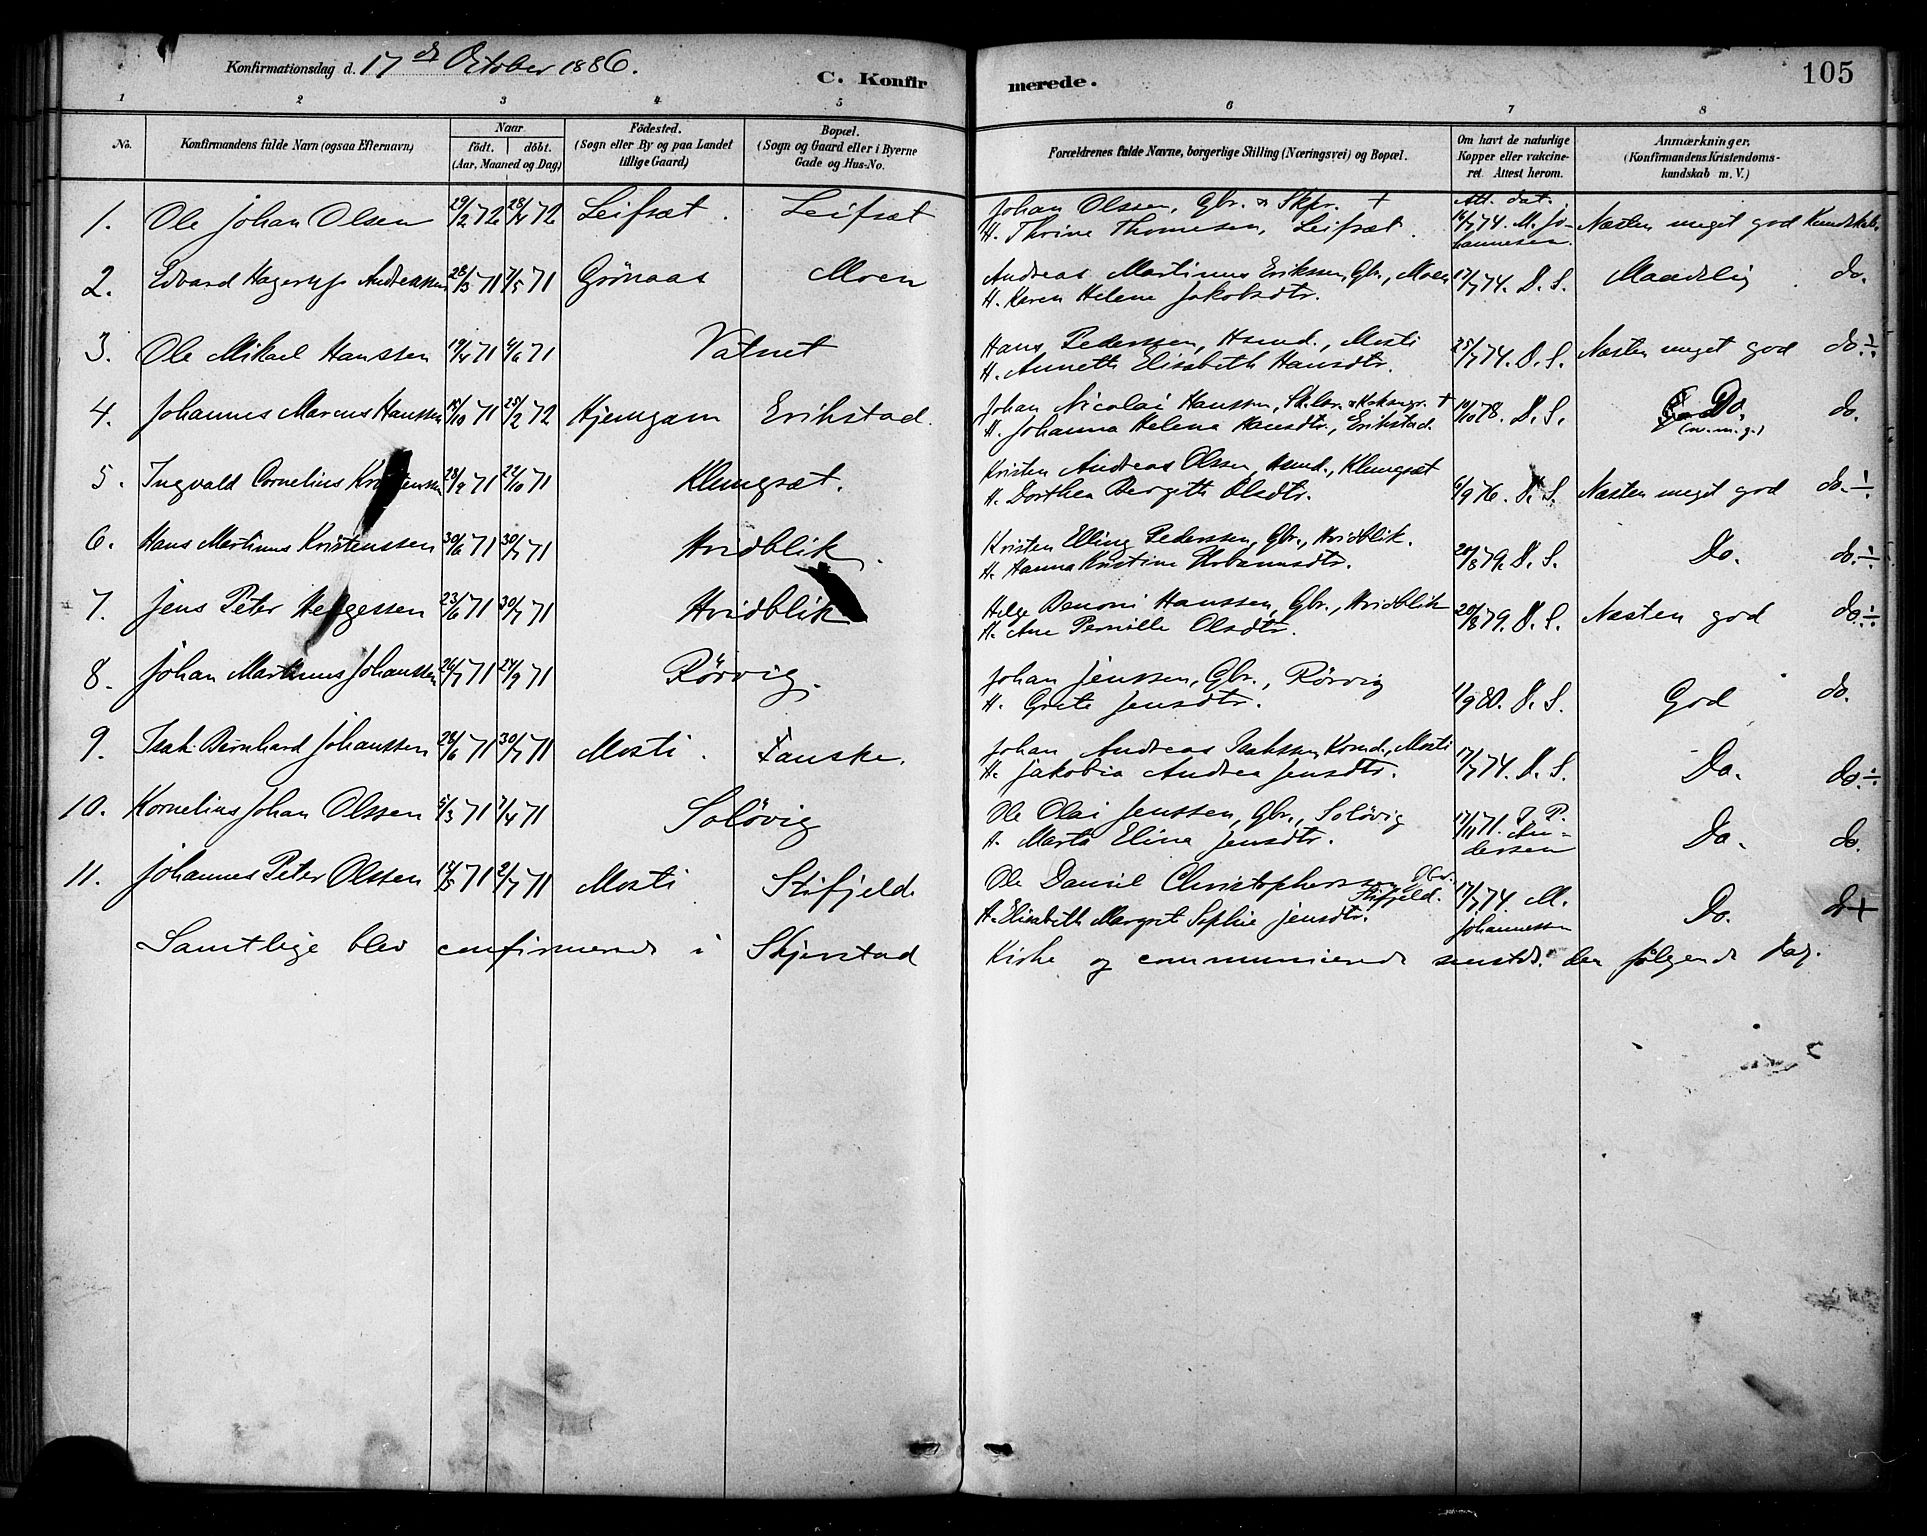 Konfirmationsdag d. 17de October 1886.
C. Konfirmerede.
105
1 2 3 4 5 6 7 8
No.
Konfirmandens fulde Navn (ogsaa Efternavn)
Naar
födt. döbt.
(Aar, Maaned og Dag)
Födested.
(Sogn eller By og paa Landet
tillige Gaard)
Bopæl.
(Sogn og Gaard eller i Byerne
Gade og Hus-No.
Forældrenes fulde Navne, borgerlige Stilling (Næringsvei) og Bopæl.
Om havt de naturlige
Kopper eller vakcine-
ret. Attest herom.
Anmærkninger.
(Konfirmandens Kristendoms-
kundskab m. V.)
1. Ole Johan Olsen 29/2 72 28/4 72 Leifsæt. Leifsæt
Johan Olssen, Gbr. & Skpr. +
H. Thrine Thomesen, Leifsæt.
Att. dat.
16/7 74. M. Jo-
hannesen
Næsten meget god Kundskab.
2. Edvard Hagerup Andreassen 28/3 71 7/5 71 Grönaas Moen
Andreas Martinus Erikssen, Gbr., Moen
H. Karen Helene Jakobsdtr.
17/7 74. D. S. Maadelig do.
3. Ole Mikael Hanssen 19/4 71 4/6 71 Vatnet
Hans Pederssen, Hsmd., Mosti
H. Annette Elisabeth Hansdtr.
25/7 74. D. S. Næsten meget god do. ÷
4. Johannes Marcus Hanssen 15/10 71 25/2 72 Hjemgam Erikstad.
Johan Nicolai Hanssen, +
H. Johanna Helena Hansdtr., Erikstad.
14/10 78. D. S. Do. do.
(n. m. g.)
5. Ingvald Cornelius Kristenssen 28/9 71 22/10 71 Klungsæt.
Kristen Andreas Olssen, Hsmd., Klungsæt
H. Dorthea Bergitte Olsdtr.
6/9 76. D. S. Næsten meget god do. ÷
6. Hans Martinus Kristenssen 30/6 71 30/7 71 Hvidblik.
Kristen Elling Pederssen, Gbr., Hvidblik.
H. Hanna Kristine Urbanusdtr.
20/8 79. D. S. Do. do. ÷
7. Jens Peter Helgessen 23/6 71 30/7 71 Hvidblik
Helge Benoni Hanssen, Gbr., Hvidblik
H. Ane Pernille Olsdtr.
20/8 79. D. S. Næsten god do. ÷
8. Johan Martinus Johanssen 26/7 71 24/9 71 Rörvig.
Johan Jenssen, Gbr., Rörvig
H. Grete Jensdtr.
1/9 80. D. S. God do.
9. Isak Bernhard Johanssen 28/6 71 30/7 71 Mosti. Fauske.
Johan Andreas Isakssen, Mosti
H. Jakobia Andrea Jensdtr.
17/7 74. D. S. Do. do. ÷
10. Kornelius Johan Olssen 5/3 71 7/4 71 Solövig
Ole Olai Jenssen, Gbr., Solövig
H. Marta Elina Jensdtr.
17/11 71. J. P.
An-
dersen
Do. do.
11. Johannes Peter Olssen 14/5 71 2/7 71 Mosti Stifjeld.
Ole Daniel Christopherssen, Gbr.
Stifjeld.
H. Elisabeth Margret Sophie Jensdtr.
17/7 74. M.
Johannessen
Do. do +
Samtlige blev confirmerede i Skjerstad Kirke og communicerede den følgende Dag.